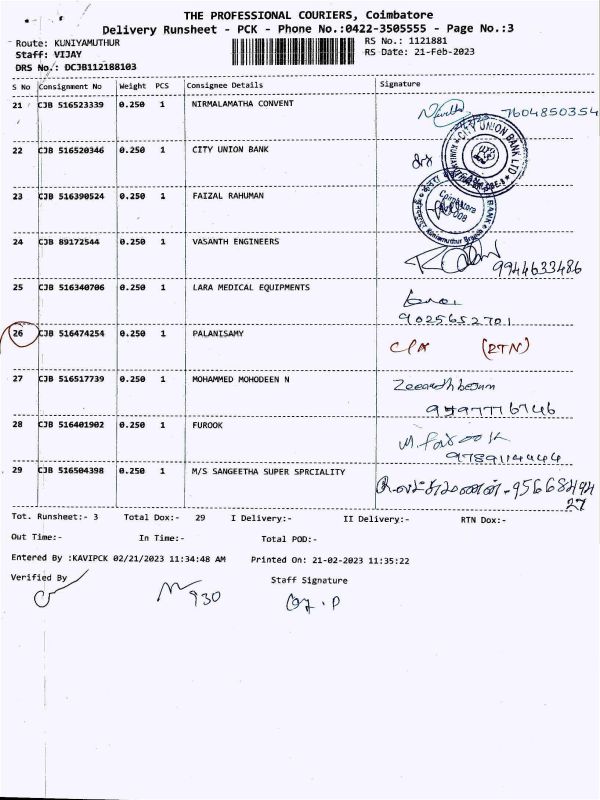 THE PROFESSIONAL COURIERS, Coimbatore
Delivery Runsheet - PCK - Phone No.:0422-3505555 - Page No.:3
Route: KUNIYAMUTHUR RS No.: 1121881
Staff: VIJAY RS Date: 21-Feb-2023
DRS No.: DCJB112188103
S No Consignment No Weight PCS Consignee Details Signature
21 CJB 516523339 0.250 1 NIRMALAMATHA CONVENT 7604850354
22 CJB 516520346 0.250 1 CITY UNION BANK
CITY UNION BANK LTD
23 CJB 516390524 0.250 1 FAIZAL RAHUMAN
Coimbatore
Kuniamuthur Branch
BANK
24 CJB 89172544 0.250 1 VASANTH ENGINEERS
9944633486
25 CJB 516340706 0.250 1 LARA MEDICAL EQUIPMENTS
9025652701
26 CJB 516474254 0.250 1 PALANISAMY
(RTN)
27 CJB 516517739 0.250 1 MOHAMMED MOHODEEN N
28 CJB 516401902 0.250 1 FUROOK
M. farook
9789114444
29 CJB 516504398 0.250 1 M/S SANGEETHA SUPER SPRCIALITY
95668494
27
Tot. Runsheet:- 3 Total Dox:- 29 I Delivery:- II Delivery:- RTN Dox:-
Out Time:- In Time:- Total POD:-
Entered By :KAVIPCK 02/21/2023 11:34:48 AM Printed On: 21-02-2023 11:35:22
Verified By Staff Signature
930